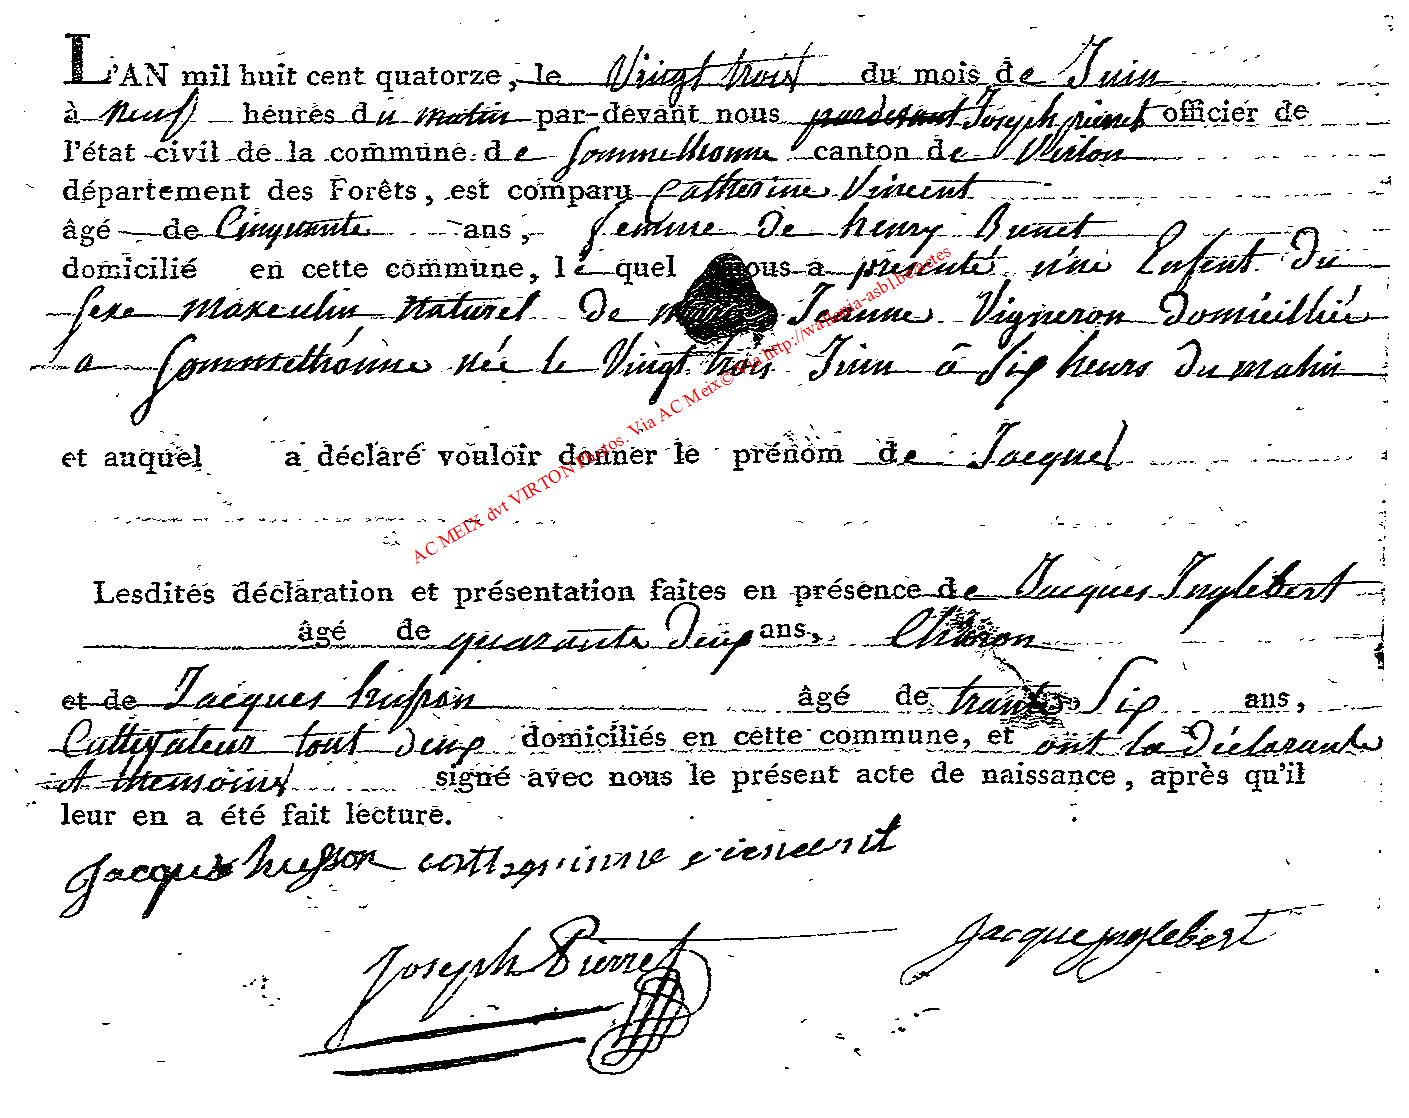 L'AN mil huit cent quatorze, le Vingt trois du mois de Juin
à neuf heures du matin par-devant nous pardevant Joseph pierret officier de
l'état civil de la commune de Sommethonne canton de Virton
département des Forêts, est comparu Catherine Vincent
âgé de Cinquante ans, femme de henry Brunet
domicilié en cette commune, le quel nous a présenté une Enfent du
sexe masculin naturel de marie Jeanne Vigneron domiciliée
a Sommethonne née le Vingt trois Juin à six heurs du matin
et auquel a déclaré vouloir donner le prénom de Jacques
Lesdites déclaration et présentation faites en présence de Jacques Inglebert
âgé de quarante deux ans, Charon
et de Jacques husson âgé de trante six ans,
Cultivateur tout deux domiciliés en cette commune, et ont la déclarante
signé avec nous le présent acte de naissance, après qu'il
leur en a été fait lecture.
Jacques husson cattherinne viencent
Joseph Pierret
Jacque jnglebert
AC MEIX dvt VIRTON Photos. Via AC Meix©